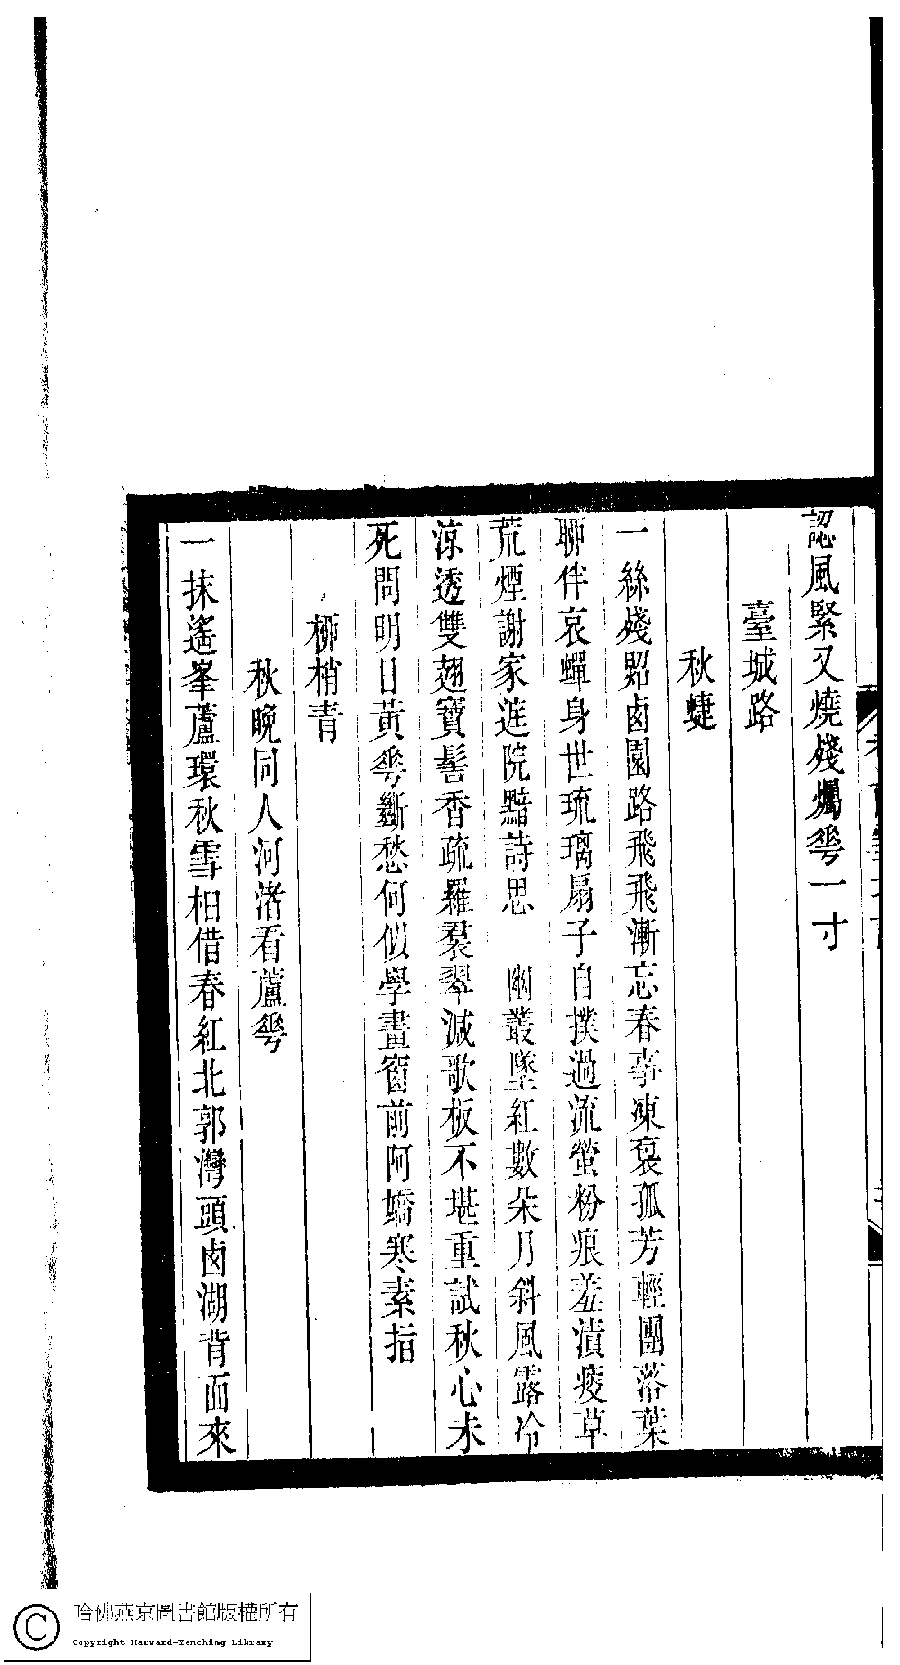 認風緊又燒殘爥蕚一寸
臺城路
秋蜨
一絲殘照鹵園路飛飛漸忘春事凍裛孤芳輕團落葉
聊伴哀蟬身世琉璃扇子自撲過流螢粉痕羞漬瘦草
荒煙謝家連院黯詩思　幽叢墜紅數朵月斜風露冷
涼透雙翅寶髻香疏羅裠翠減歌板不堪重試秋心未
死問明日黃蕚斷愁何似學畫窗前阿嬌寒素指
桺梢青
秋晚同人河渚看蘆蕚
一抹遙峯蘆環秋雪相借春紅北郭灣頭鹵湖背面來
哈佛燕京圖書館版權所有
Copyright Harvard-Yenching Library